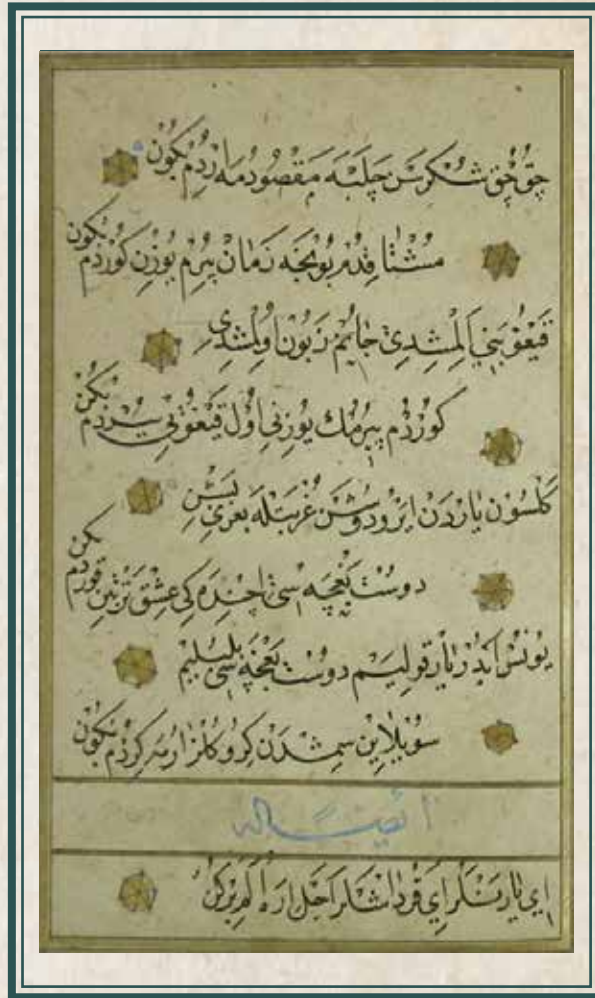 چوق چوق شكر سن چلبه مقصودمه اردم بكون
مشتاقدم بونجه زمان پيرم يوزن كوردم بكون
قيغو بني المشدي جانم زبون اولمشدي
كوردم پيرمك يوزني اول قيغوني سردم بكن
كلسون ياردن ايرو دوشن غربتله بغري بشن
دوست بغچه اسي اچنده كي عشق تربتين قوردم بكن
يونس ايدر يار قوليم دوست بغچه اسي بلبليم
سويلاين سمشدن كرو كلزارمه كردم بكون
اي يارنلر اي قرداشلر اجل اره الم بركن